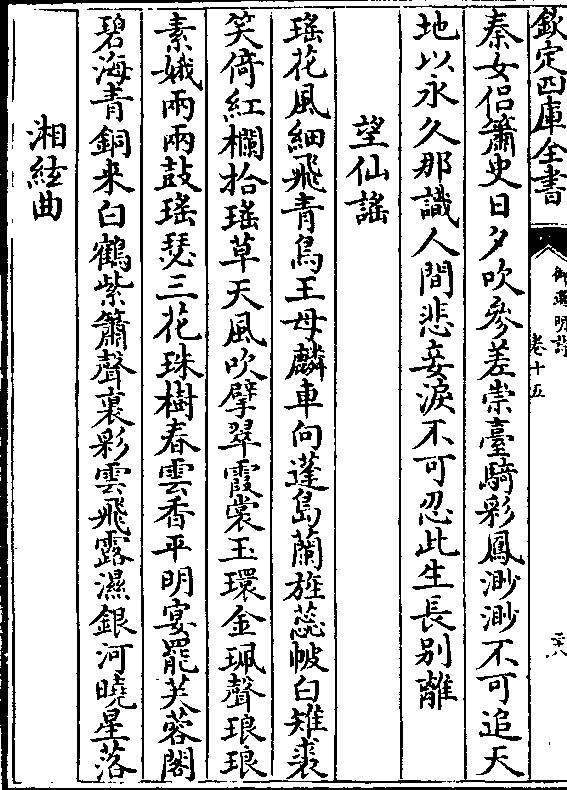 欽定四庫全書
御選明詩
卷十五
二十八
秦女侶簫史日夕吹參差崇臺騎彩鳳渺渺不可追天
地以永久那識人間悲妾淚不可忍此生長別離
望仙謠
瑤花風細飛青鳥王母麟車向蓬島蘭旌蕊帔白雉裘
笑倚紅欄拾瑤草天風吹擘翠霞裳玉環金珮聲琅琅
素娥兩兩鼓瑤瑟三花珠樹春雲香平明宴罷芙蓉閣
碧海青銅来白鶴紫簫聲裏彩雲飛露濕銀河曉星落
湘絃曲